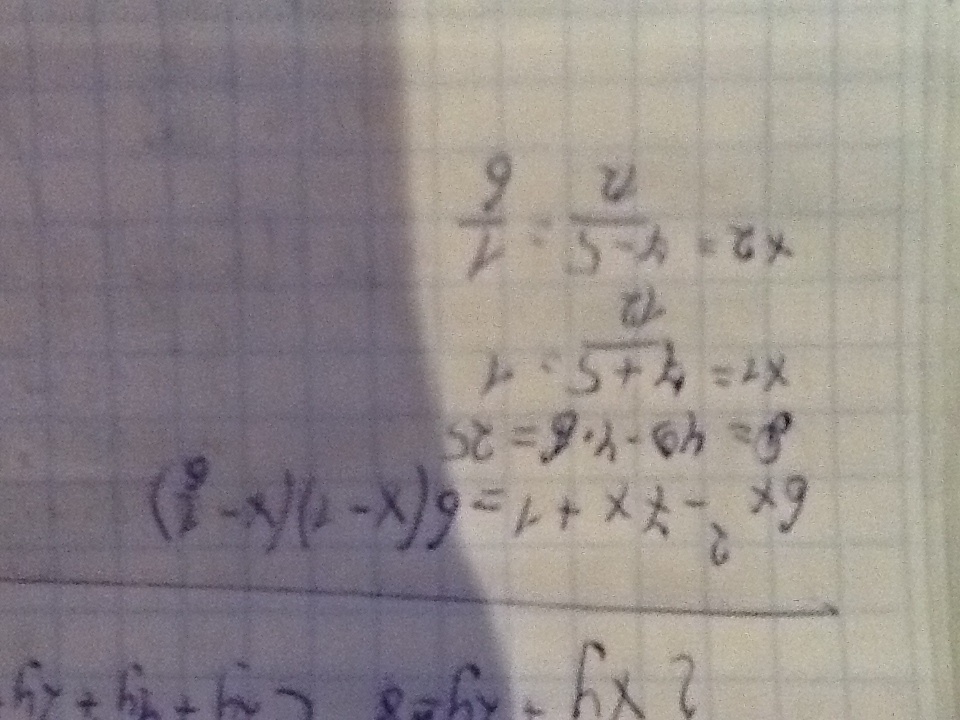 6x² - 7x + 1 = 6(x - 1)(x - 1/6)
D = 49 - 4·6 = 25
x1 = 7+5/12 = 1
x2 = 7-5/12 = 1/6